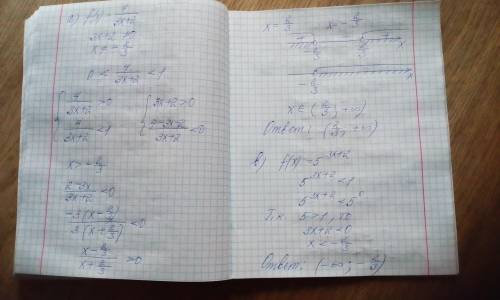 a) f(x) = 4/(3x+2)
3x+2 ≠ 0
x ≠ -2/3
0 < 4/(3x+2) < 1
{ 4/(3x+2) > 0 { 3x+2 > 0
{ 4/(3x+2) < 1 { (4-3x-2)/(3x+2) < 0
x > -2/3
(2-3x)/(3x+2) < 0
-3(x-2/3)/3(x+2/3) < 0
(x-2/3)/(x+2/3) > 0
x = 2/3 x = -2/3
-2/3 2/3 x
-2/3 x
x ∈ (2/3; +∞)
Ответ: (2/3; +∞)
в) f(x) = 5^(3x+2)
5^(3x+2) < 1
5^(3x+2) < 5^0
Т.к. 5 > 1, то
3x+2 < 0
x < -2/3
Ответ: (-∞; -2/3)